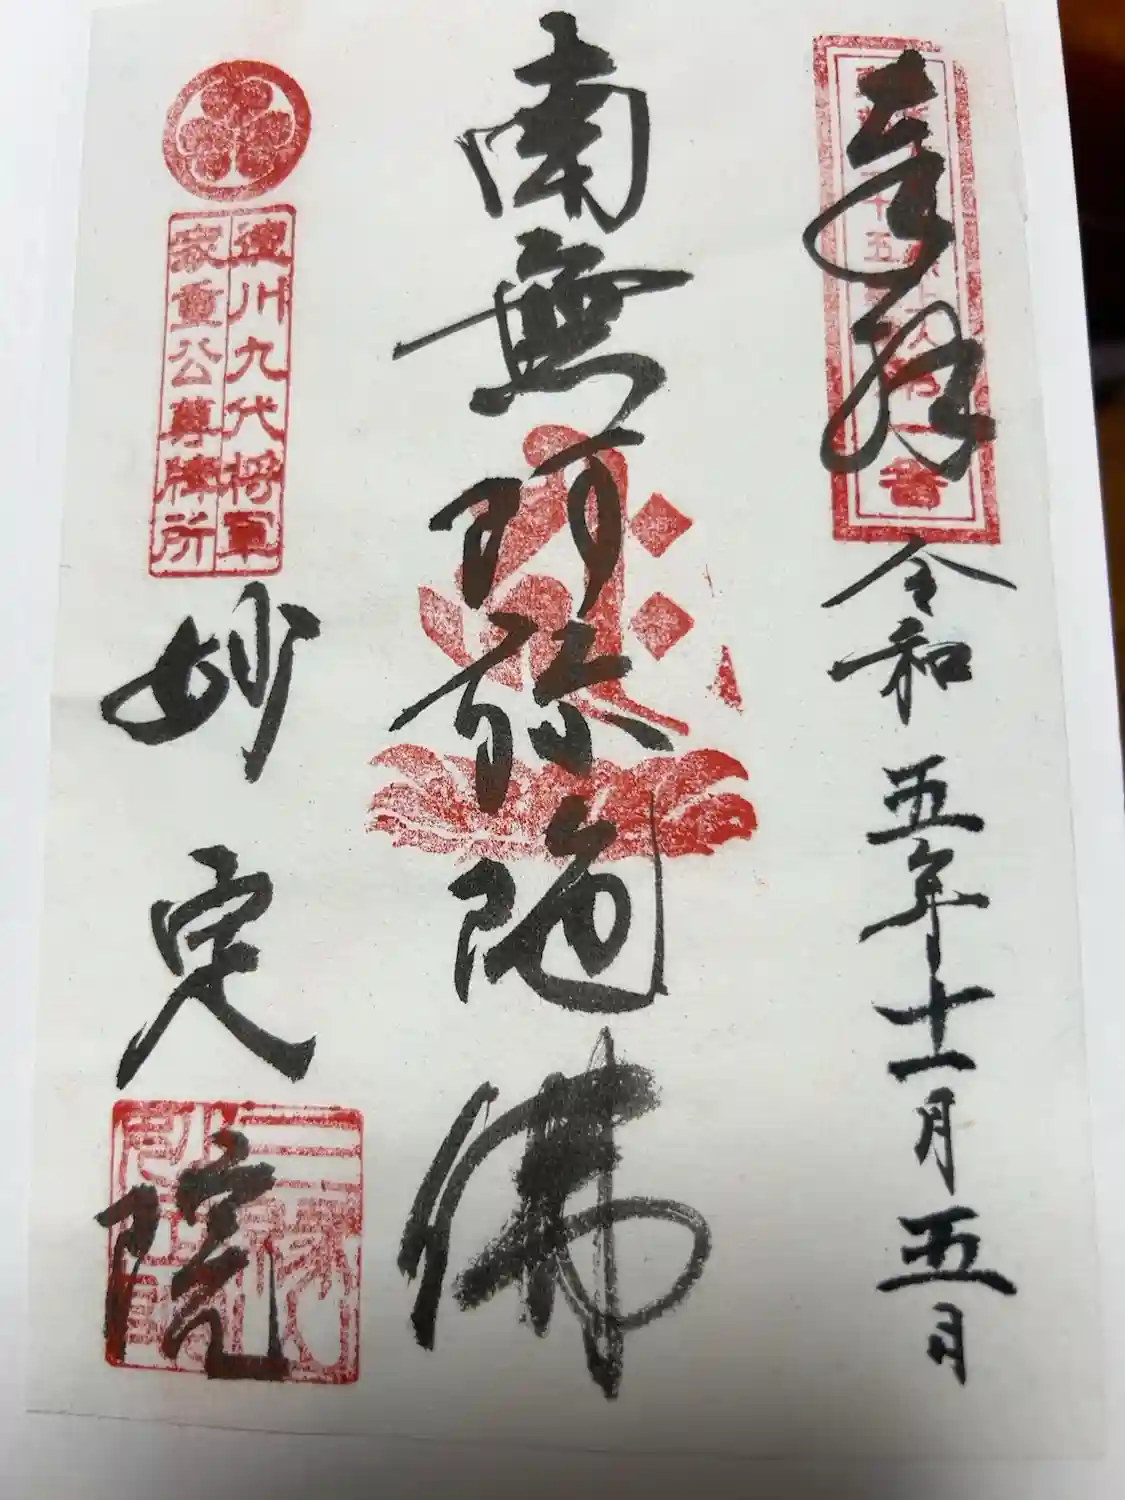 奉拝
令和五年十一月五日
南無阿弥陀佛
徳川九代将軍
家重公尊牌所
妙定院
三縁山